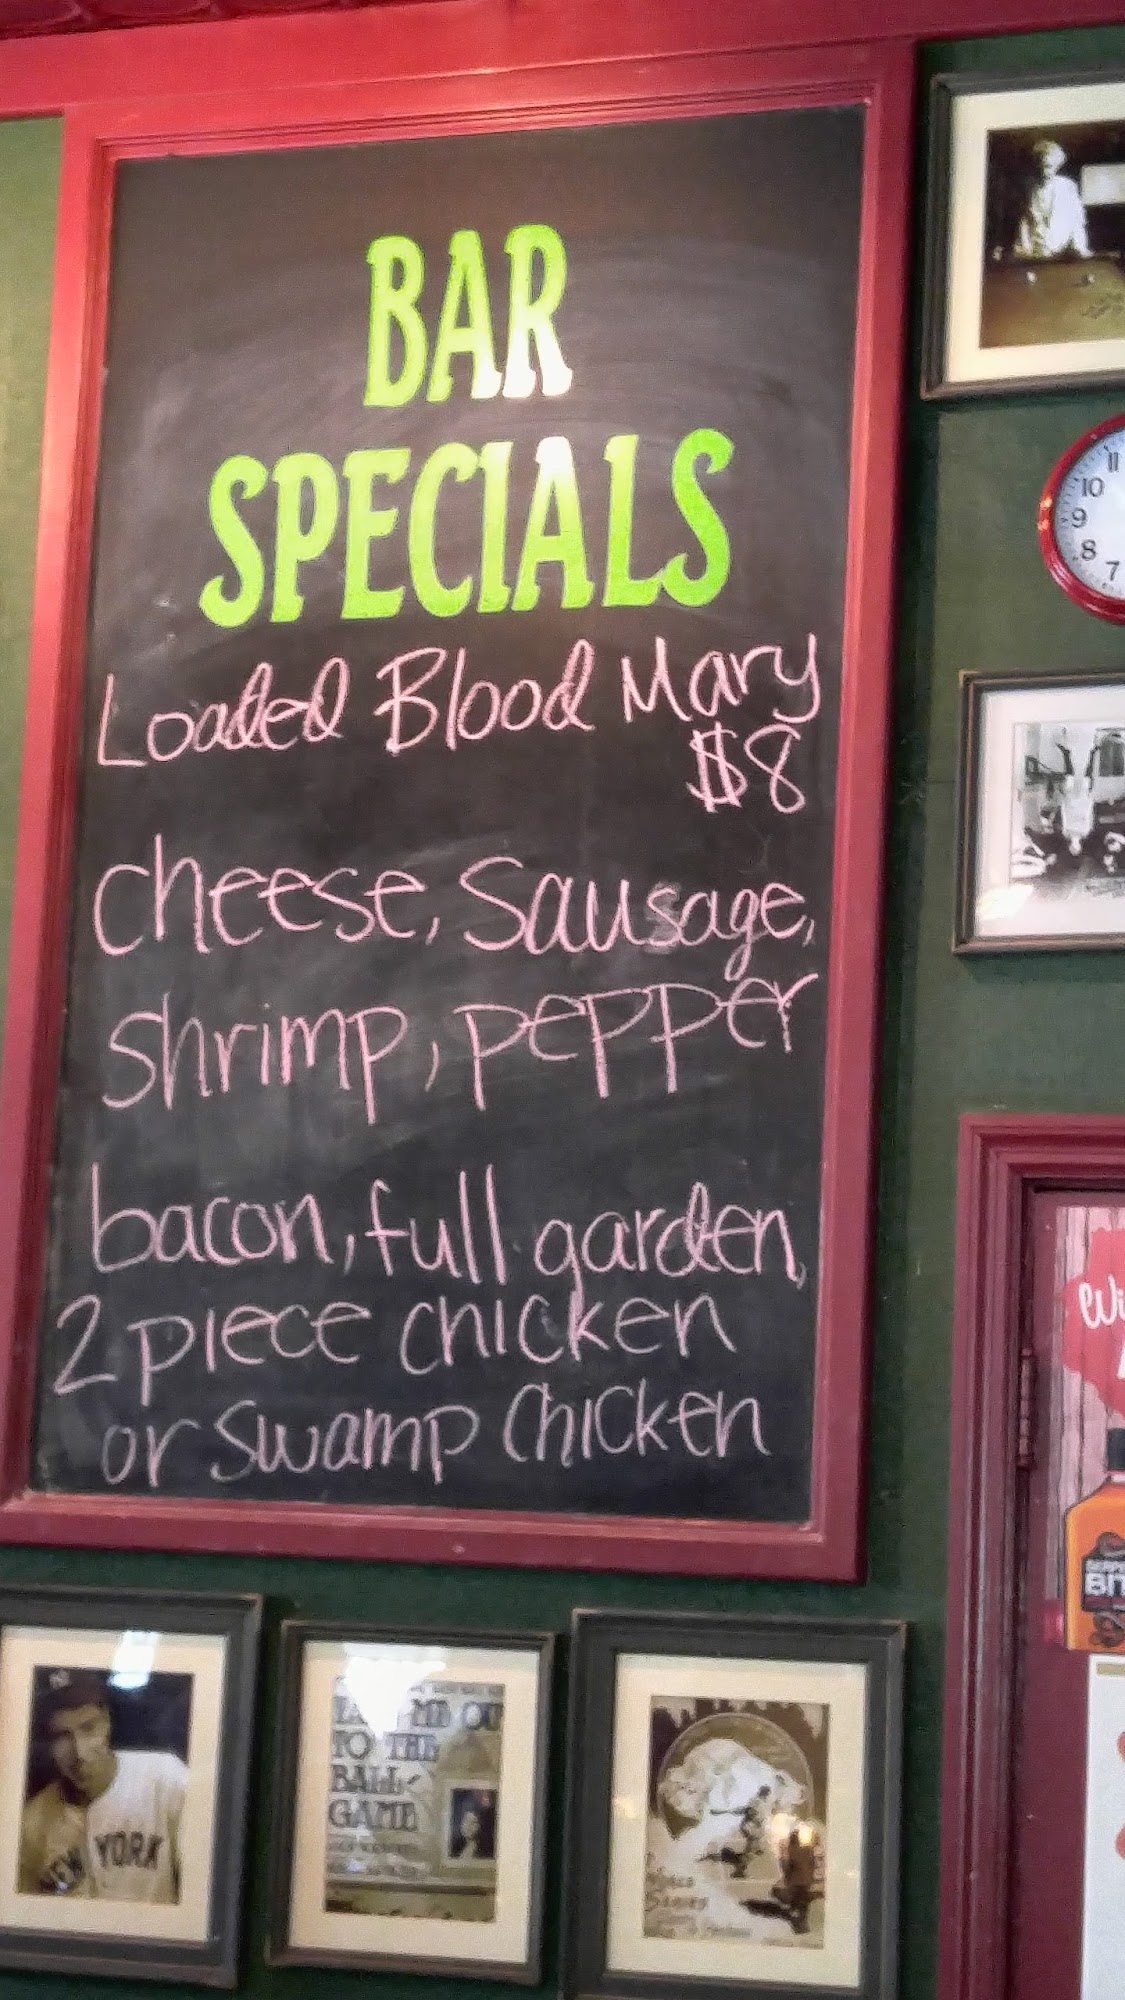 BAR
SPECIALS
Loaded Blood Mary
$8
cheese, sausage,
shrimp, pepper
bacon, full garden,
2 piece chicken
or swamp chicken
11
10
9
8
7
NEW YORK
ME OU
TO THE
BALL
GAME
WORLD
SERIES
BIT